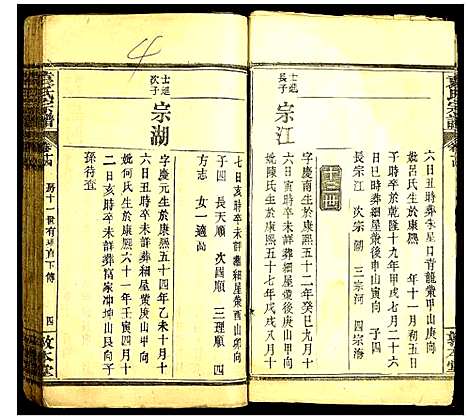 六日丑時葬朱星日青龍崠甲山庚向
妣呂氏生於康熙 年十一月初五日
子時卒於乾隆十九年甲戌七月二十六
日巳時葬細屋崠後申山寅向 子四
長宗江 次宗湖 三宗河 四宗海
十二世
士進長子 宗江
字慶南生於康熙五十二年癸巳九月十
六日寅時卒未詳葬細屋崠後庚山甲向
妣陳氏生於康熙五十七年戊戌八月十
七日亥時卒未詳葬細屋崠酉山卯向
子四 長天順 次四順 三理順 四
方志 女一適
士進次子 宗湖
字慶元生於康熙五十四年乙未十月十
六日丑時卒未詳葬細屋崠庚山甲向
妣何氏生於康熙六十一年壬寅四月十
二日亥時卒未詳葬富家冲坤山艮向
孫待查
氏宗譜
四
敦本堂
4